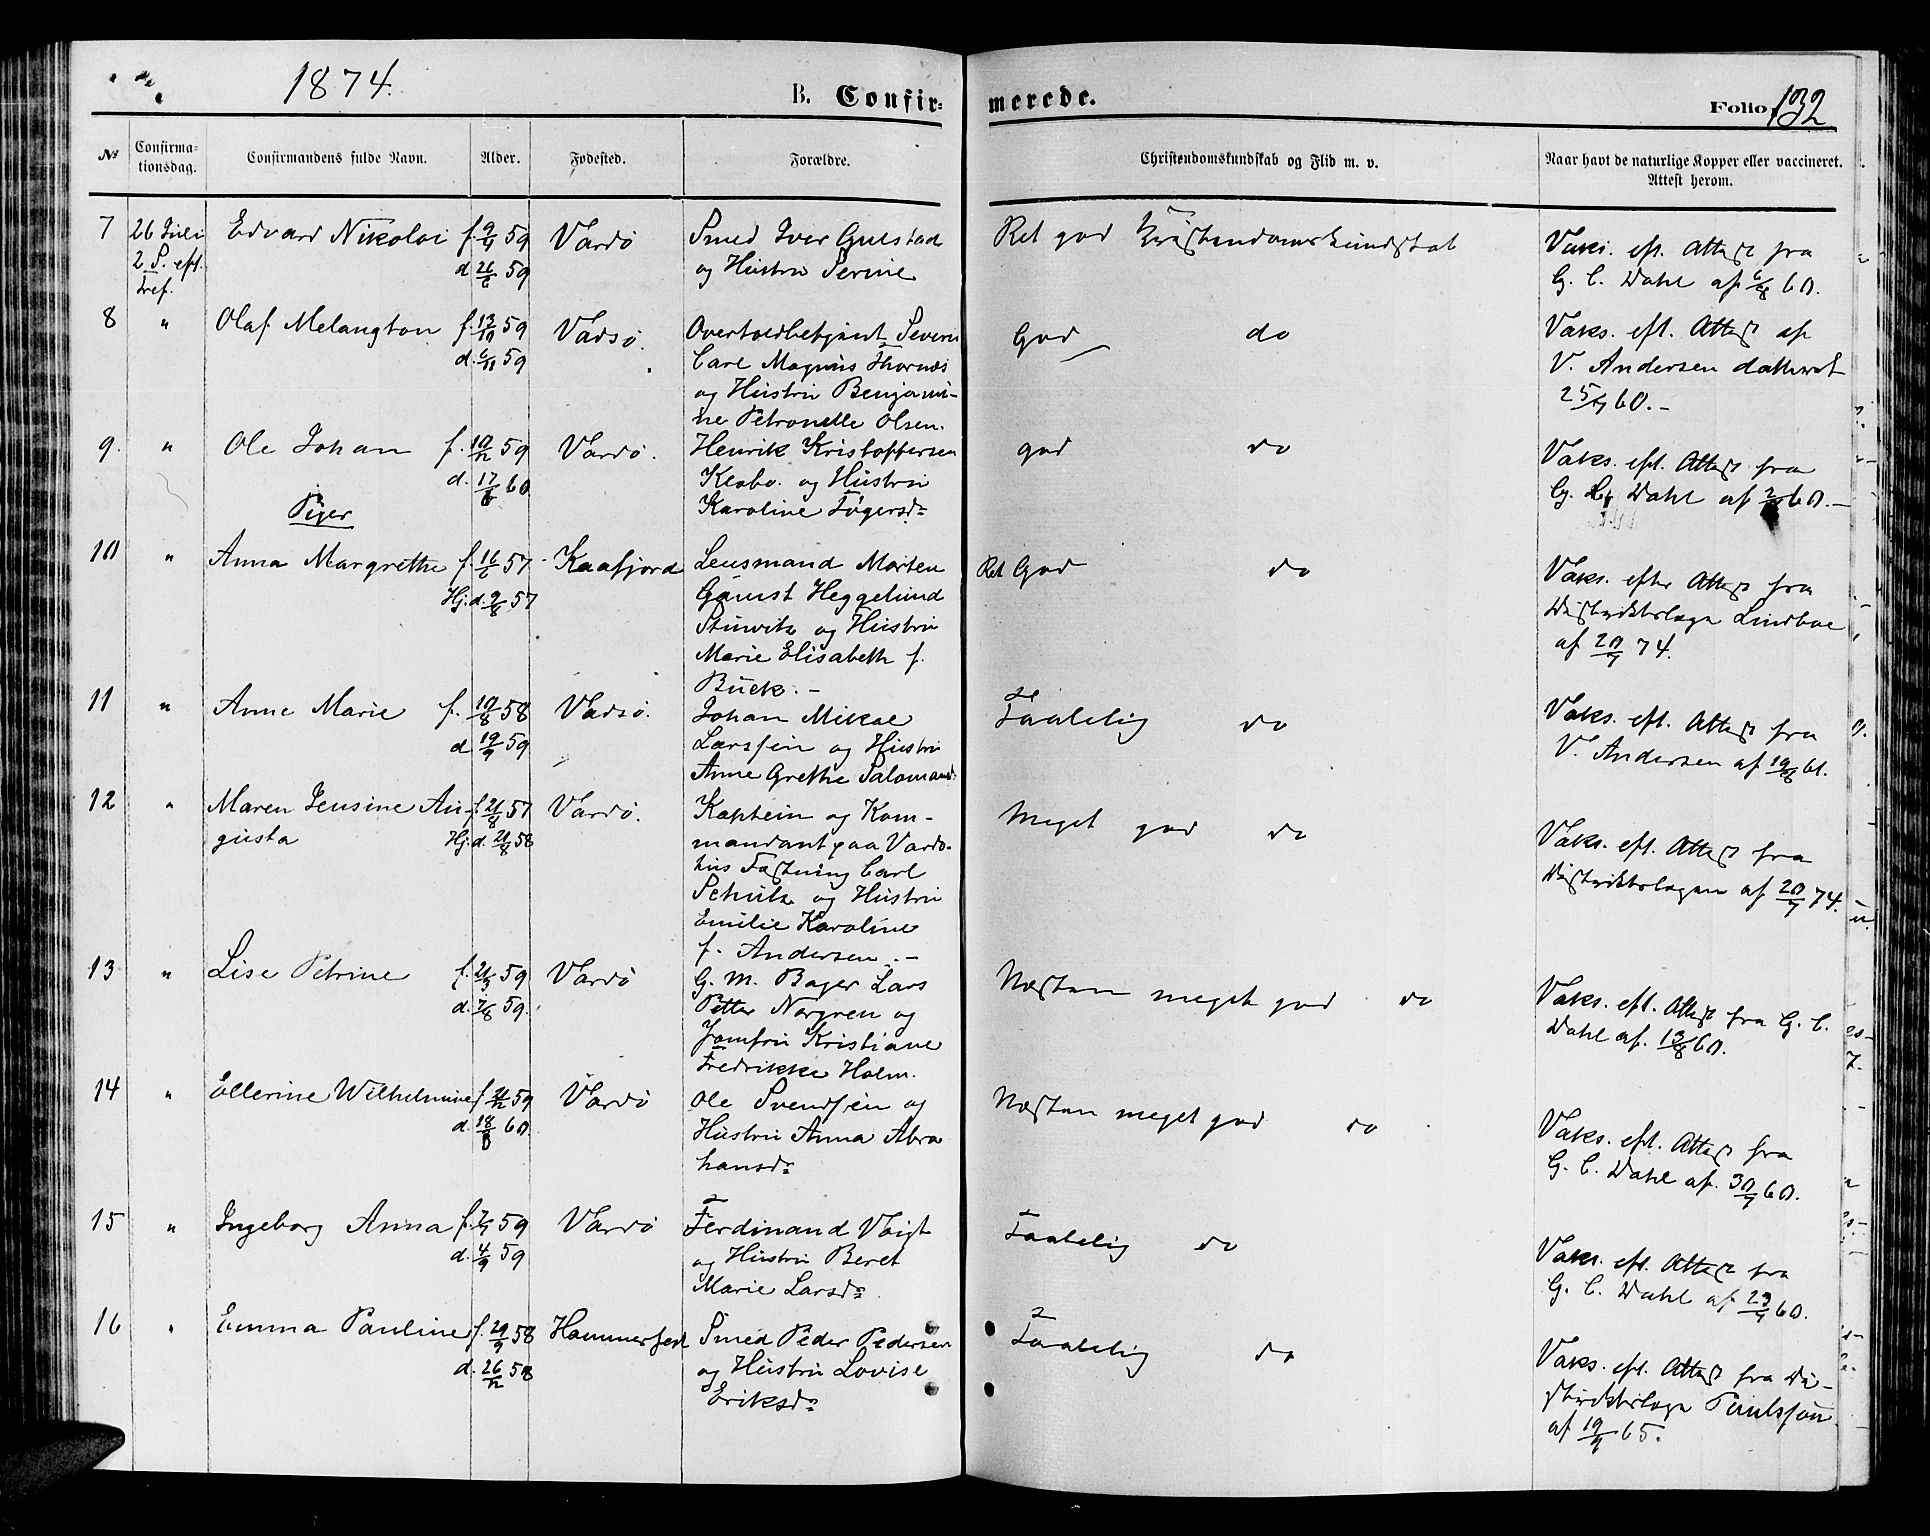 1874.
B. Confir-
merede.
Folio 132
№
Confirma-
tionsdag.
Confirmandens fulde Navn.
Alder.
Fødested.
Forældre.
Christendomskundskab og Flid m. v.
Naar havt de naturlige Kopper eller vaccineret.
Attest herom.
7
26 Juli
2 S. eft.
Tref.
Edvard Nikolai
f. 9/4 59
d 26/6 59
Vardø
Smed Iver Gulstad
og Hustru Serine
Ret god Kristendomskundskab
Vaks. eft. Attest fra
G. C. Dahl af 6/8 60.
8
"
Olaf Melangton
f. 13/10 59
d. 6/11 59
Vadsø.
Overtoldbetjent Severin
Carl Magnus Thornæs
og Hustru Benjami-
ne Petronelle Olsen.
God do
Vaks. eft. Attest af
V. Andersen datteret
25/9 60.-
9.
"
Ole Johan
f. 10/12 59
d. 17/6 60
Vardø.
Henrik Kristoffersen
Klæbo. og Hustru
Karoline Tøgersd:
god do
Vaks. eft. Attest fra
G. C. Dahl af 60.-
Piger
10
"
Anna Margrethe
f. 16/6 57
Hj. d. 9/8 57
Kaafjord
Lensmand Morten
Gamst Heggelund
og Hustru
Marie Elisabeth f.
Buck.-
Ret God do
Vaks. efter Attest fra
Distriktslæge Lindboe
af 20/7 74.
11
"
Anne Marie
f. 10/8 58
d 19/9 59
Vadsø.
Johan Mikal
Larssen og Hustru
Anne Grethe Salomonsd:
Taalelig do
Vaks. eft. Attest fra
V. Andersen af 19/8 61.
12
"
Maren Jensine Au-
gusta
f. 21/8 57
Hj. d. 21/8 58
Vardø.
Kaptein og Kom-
mandant paa Vardø-
hus Fæstning Carl
Schulz og Hustru
Emilie Karoline
f. Andersen.-
Meget god do
Vaks. eft. Attest fra
Distriktslægen af 20/7 74.
13
"
Lise Petrine
f. 21/3 59
d. 7/8 59.
Vardø
G. M. Bager Lars
Petter Norgren og
Jomfru Kristiane
Fredrikke Holm.
Næsten meget god do
Vaks. eft. Attest fra G. C.
Dahl af. 13/8 60.
14
"
Ellerine Wilhelmine
f. 59
d. 18/6 60.
Vardø
Ole Svendsen og
Hustru Anna Abra
hamsd:
Næsten meget god do
Vaks. eft. Attest fra
G. C. Dahl af. 30/7 60.
15
"
Ingeborg Anna
f. 7/7 59
d. 4/9 59
Vardø
Ferdinand Voigt
og Hustru Beret
Marie Larsd:
Taalelig do
Vaks. eft. Attest fra
G. C. Dahl af 23/7 60.
16
"
Emma Pauline
f. 29/9 58
d. 26/12 58
Hammerfest
Smed Peder Pedersen
og Hustru Lovise
Eriksd:
Taalelig do
Vaks. eft. Attest fra Di-
striktslæge Paulssøn
af 19/9 65.